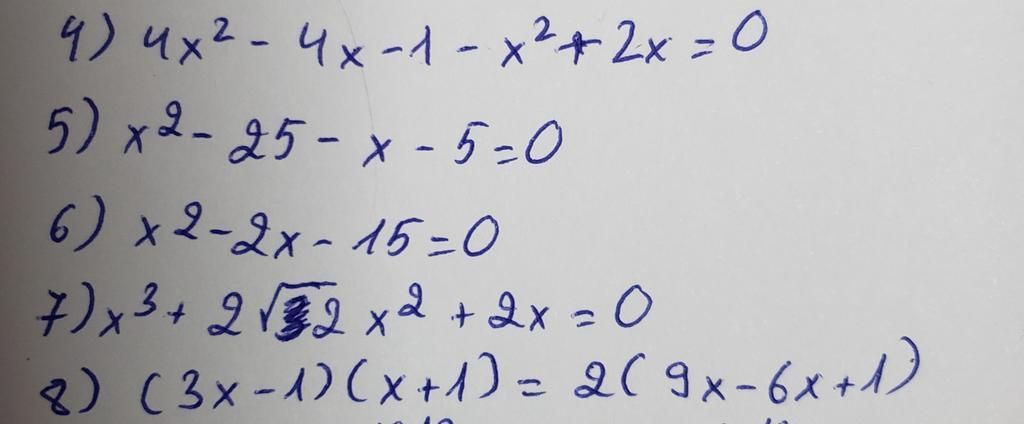 4) 4x² - 4x - 1 - x² + 2x = 0
5) x² - 25 - x - 5 = 0
6) x² - 2x - 15 = 0
7) x³ + 2√2 x² + 2x = 0
8) (3x - 1)(x + 1) = 2(9x - 6x + 1)